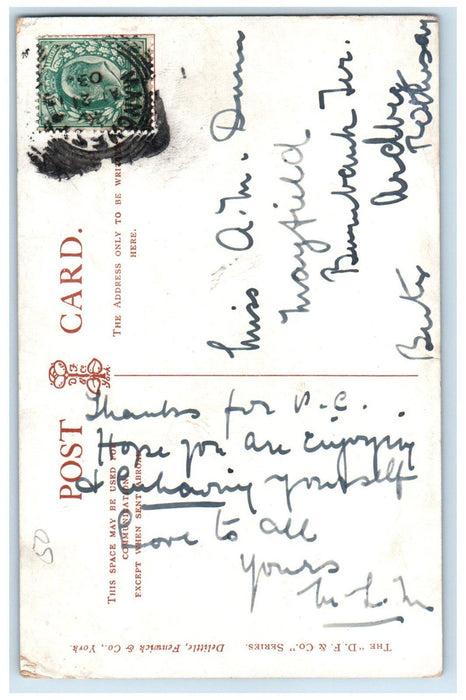 POST CARD.
D F & Co
York
THIS SPACE MAY BE USED FOR
COMMUNICATION
EXCEPT WHEN SENT ABROAD
THE ADDRESS ONLY TO BE WRITTEN
HERE.
Thanks for P.C.
Hope you are enjoying
& behaving yourself
Love to all
yours
M.L.M
Miss A.M. Dunn
Mayfield
Burnbank Ter.
Ardbeg
Rothesay
Bute
THE "D. F. & Co." SERIES.
Delittle, Fenwick & Co., York.
50